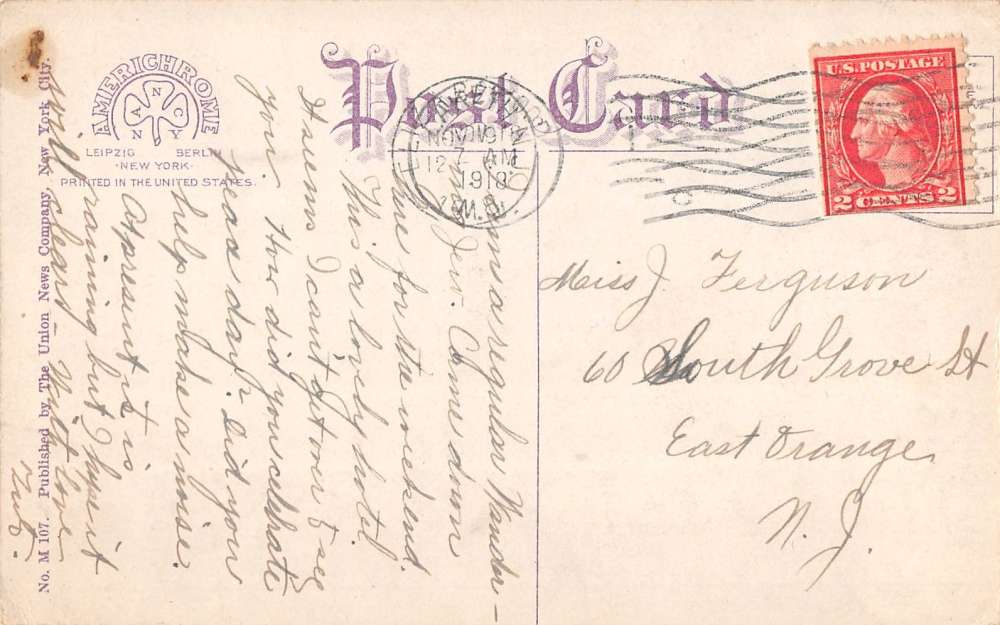 Post Card
AMERICHROME
ANCNY
LEIPZIG BERLIN
·NEW YORK·
PRINTED IN THE UNITED STATES.
No. M 107. Published by The Union News Company, New York City.
NOV 19
12 - AM
1918
U.S. POSTAGE
2 CENTS 2
a regular Wander-
Jew. Came down
here for the weekend.
This a lovely hotel
It seems I can't get over to see
you. How did you celebrate
Peace day? Did you
help make a noise.
At present it is
raining but I hope it
will clear - With love
Miss J. Ferguson
60 South Grove St
East Orange
N. J.